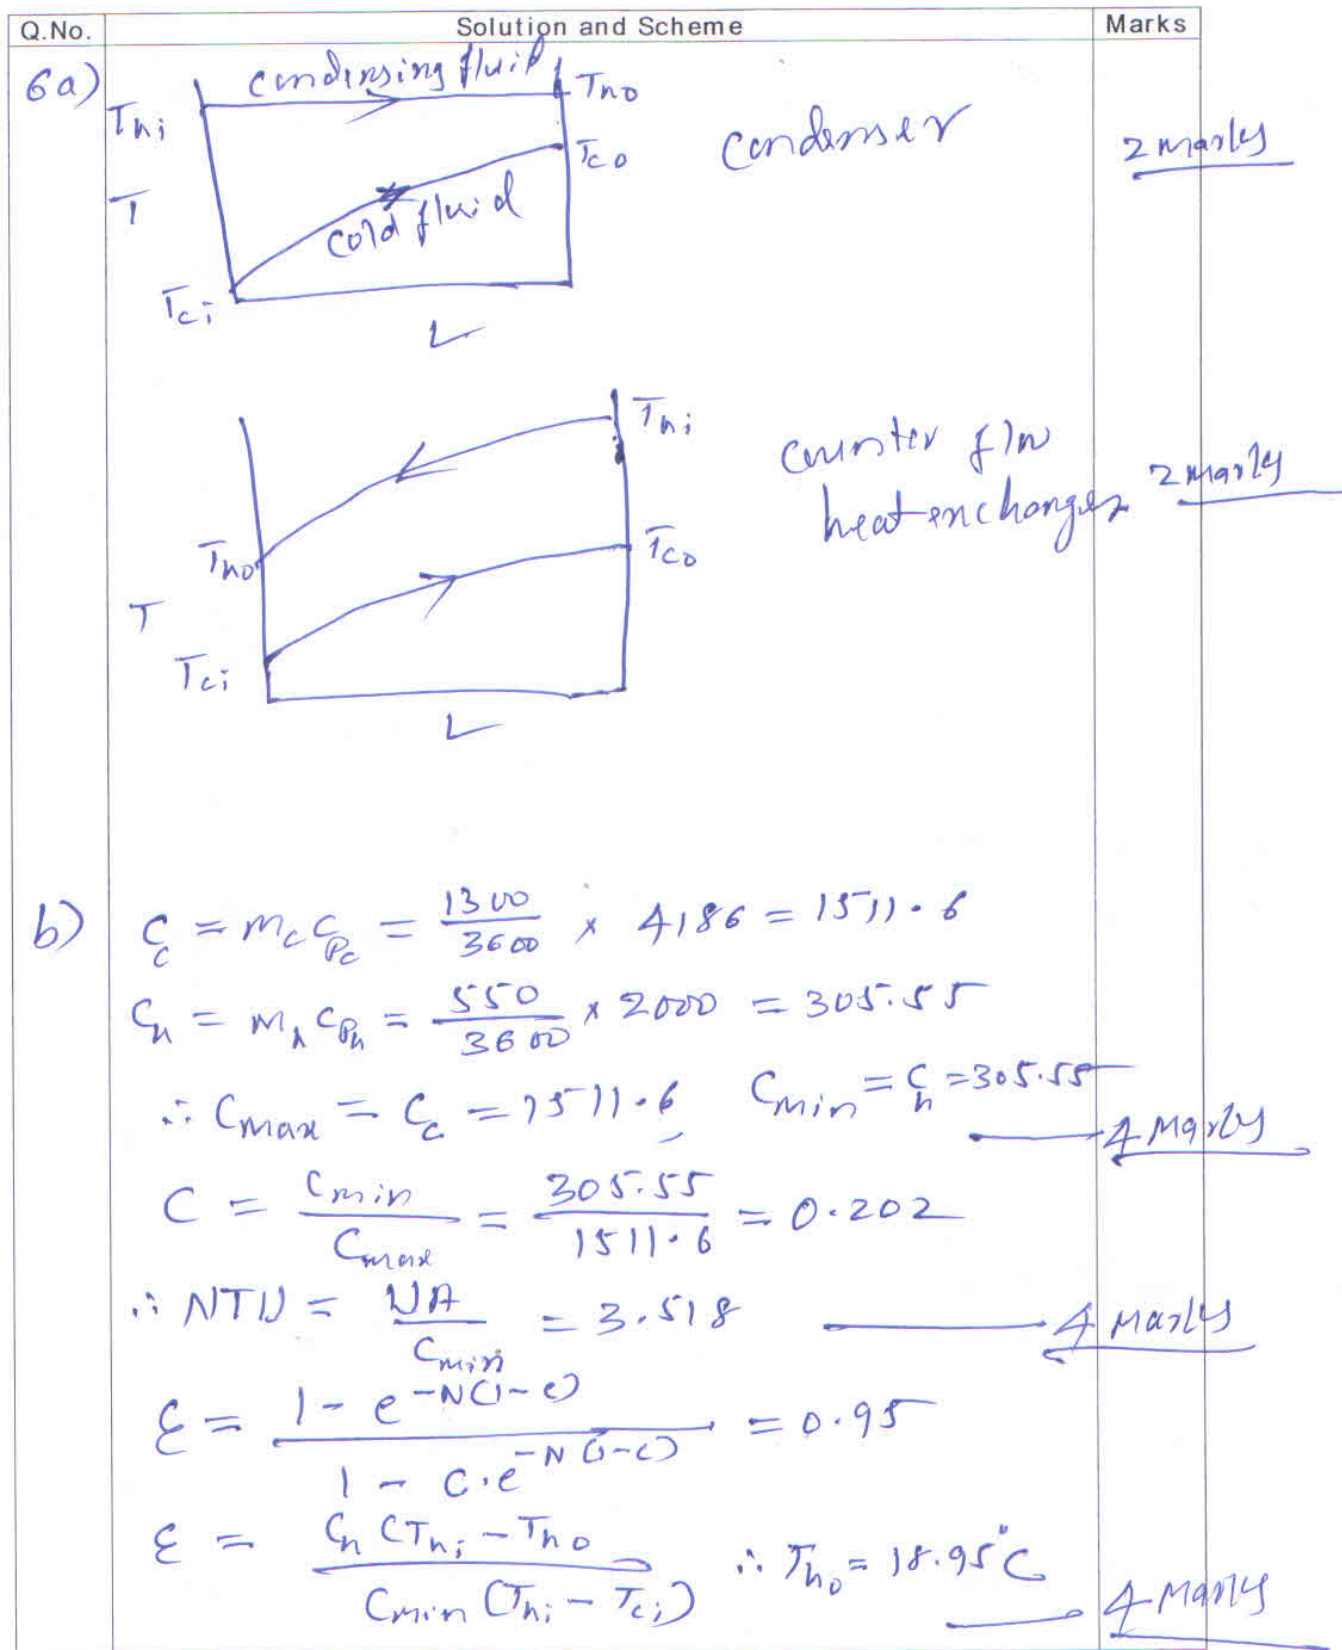 Q.No. Solution and Scheme Marks
6a) condensing fluid
Thi Tho
Tco
condenser 2 marks
T
cold fluid
Tci
L
Thi
counter flow
heat exchanger 2 marks
Tho Tco
T
Tci
L
b) Cc = mc Cpc = 1300/3600 × 4186 = 1511.6
Ch = mh Cph = 550/3600 × 2000 = 305.55
∴ Cmax = Cc = 1511.6 Cmin = Ch = 305.55
4 Marks
C = Cmin/Cmax = 305.55/1511.6 = 0.202
∴ NTU = UA/Cmin = 3.518 4 Marks
ε = 1 - e^-N(1-c) / 1 - c.e^-N(1-c) = 0.95
ε = Ch (Thi - Tho / Cmin (Thi - Tci) ∴ Tho = 18.95°C
4 Marks